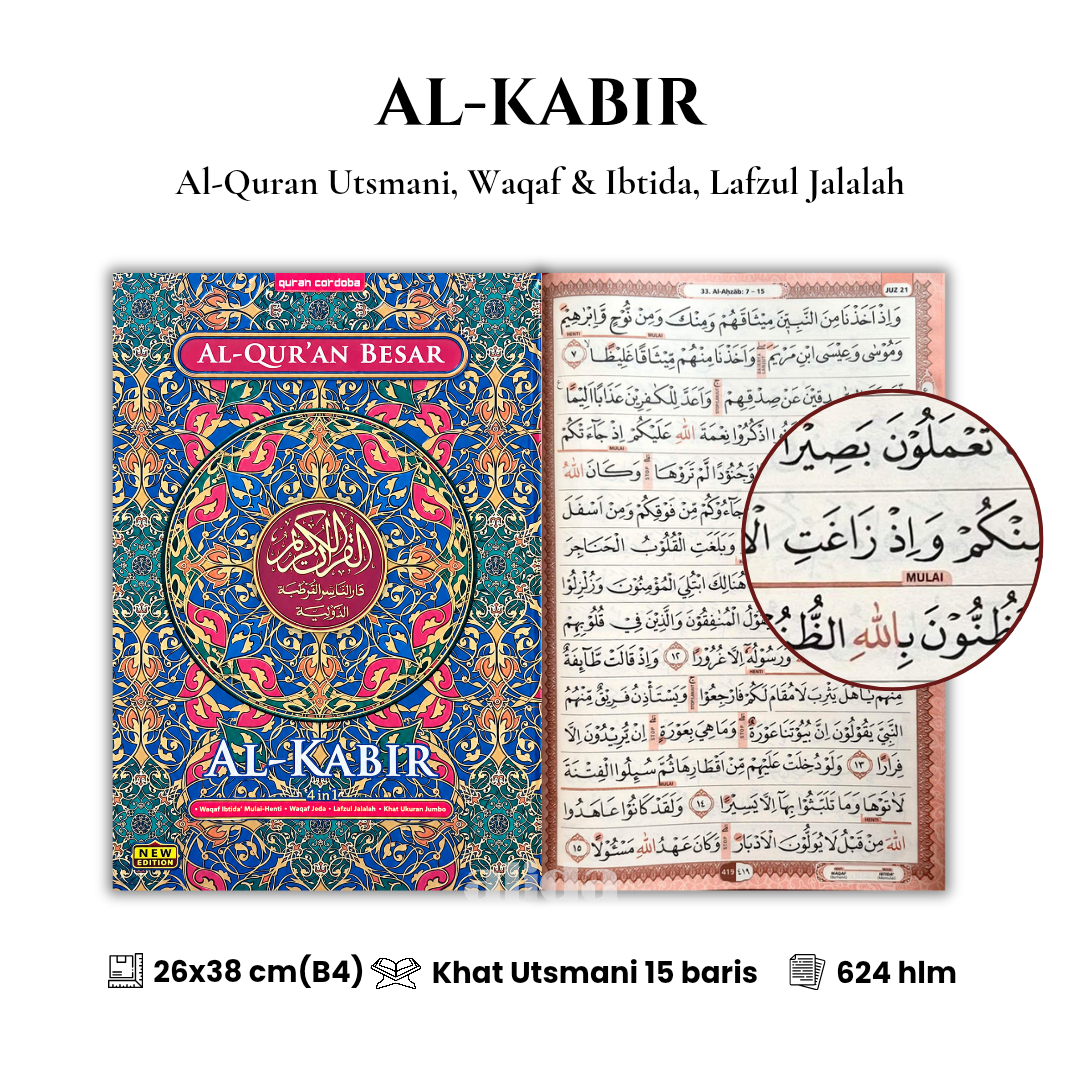 AL-KABIR
Al-Quran Utsmani, Waqaf & Ibtida, Lafzul Jalalah
quran cordoba
AL-QUR'AN BESAR
القرآن الكريم
دار الناشر القرطبة
الدولية
AL-KABIR
4 in 1
• Waqaf Ibtida' Mulai-Henti • Waqaf Jeda • Lafzul Jalalah • Khat Ukuran Jumbo
NEW
EDITION
33. Al-Aḥzāb: 7 – 15
JUZ 21
وَاِذْ اَخَذْنَا مِنَ النَّبِيّٖنَ مِيْثَاقَهُمْ وَمِنْكَ وَمِنْ نُّوْحٍ وَّاِبْرٰهِيْمَ
HENTI
MULAI
وَمُوْسٰى وَعِيْسَى ابْنِ مَرْيَمَ وَاَخَذْنَا مِنْهُمْ مِّيْثَاقًا غَلِيْظًا ٧
عَنْ صِدْقِهِمْ وَاَعَدَّ لِلْكٰفِرِيْنَ عَذَابًا اَلِيْمًا
اذْكُرُوْا نِعْمَةَ اللّٰهِ عَلَيْكُمْ اِذْ جَاۤءَتْكُمْ
MULAI
وَّجُنُوْدًا لَّمْ تَرَوْهَا STOP وَكَانَ اللّٰهُ
جَاۤءُوْكُمْ مِّنْ فَوْقِكُمْ وَمِنْ اَسْفَلَ
وَبَلَغَتِ الْقُلُوْبُ الْحَنَاجِرَ
هُنَالِكَ ابْتُلِيَ الْمُؤْمِنُوْنَ وَزُلْزِلُوْا
الْمُنٰفِقُوْنَ وَالَّذِيْنَ فِيْ قُلُوْبِهِمْ
وَرَسُوْلُهٗٓ اِلَّا غُرُوْرًا ١٢ وَاِذْ قَالَتْ طَّاۤىِٕفَةٌ
HENTI
مِّنْهُمْ يٰٓاَهْلَ يَثْرِبَ لَا مُقَامَ لَكُمْ فَارْجِعُوْا وَيَسْتَأْذِنُ فَرِيْقٌ مِّنْهُمُ
النَّبِيَّ يَقُوْلُوْنَ اِنَّ بُيُوْتَنَا عَوْرَةٌ STOP وَمَا هِيَ بِعَوْرَةٍ STOP اِنْ يُّرِيْدُوْنَ اِلَّا
فِرَارًا ١٣ وَلَوْ دُخِلَتْ عَلَيْهِمْ مِّنْ اَقْطَارِهَا ثُمَّ سُىِٕلُوا الْفِتْنَةَ
MULAI
لَاٰتَوْهَا وَمَا تَلَبَّثُوْا بِهَآ اِلَّا يَسِيْرًا ١٤ وَلَقَدْ كَانُوْا عَاهَدُوا
HENTI
اللّٰهَ مِنْ قَبْلُ لَا يُوَلُّوْنَ الْاَدْبَارَ STOP وَكَانَ عَهْدُ اللّٰهِ مَسْـُٔوْلًا ١٥
419 ٤١٩
تَعْمَلُوْنَ بَصِيْرًا
مِنْكُمْ وَاِذْ زَاغَتِ الْا
MULAI
تَظُنُّوْنَ بِاللّٰهِ الظُّنُ
26x38 cm(B4)
Khat Utsmani 15 baris
624 hlm